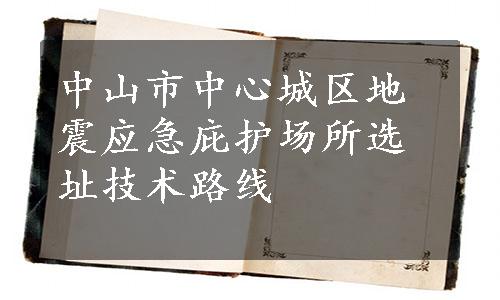 中山市中心城区地
震应急庇护场所选
址技术路线